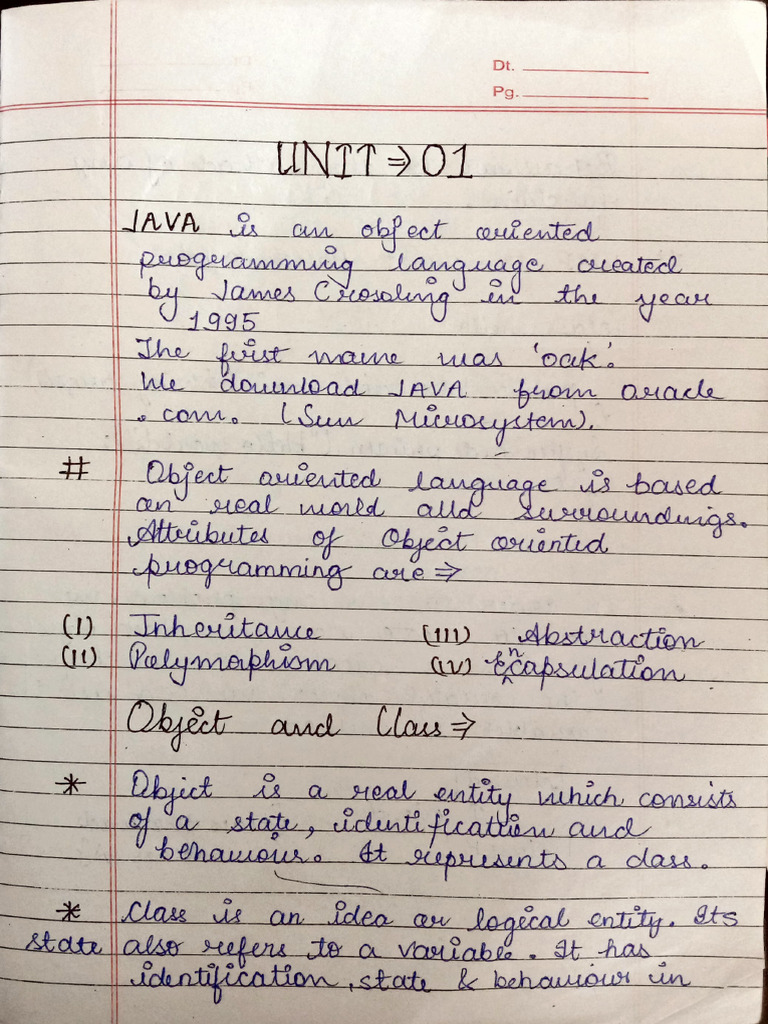 Dt.
Pg.
UNIT ⇒ 01
JAVA is an object oriented
programming language created
by James Crosoling in the year
1995
The first name was 'oak'.
We download JAVA from oracle
. com. (Sun Microsystem).
# Object oriented language is based
on real world and surroundings.
Attributes of Object oriented
programming are ⇒
(I) Inheritance (III) Abstraction
(II) Polymophism (IV) Encapsulation
Object and Class ⇒
* Object is a real entity which consists
of a state, identification and
behaviour. It represents a class.
* Class is an idea or logical entity. Its
state also refers to a variable. It has
identification, state & behaviour in